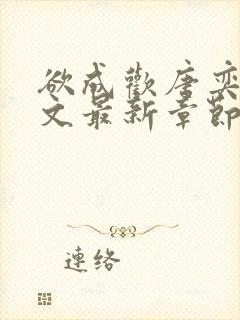 欲成歡唐奕
文最新章節
連絡